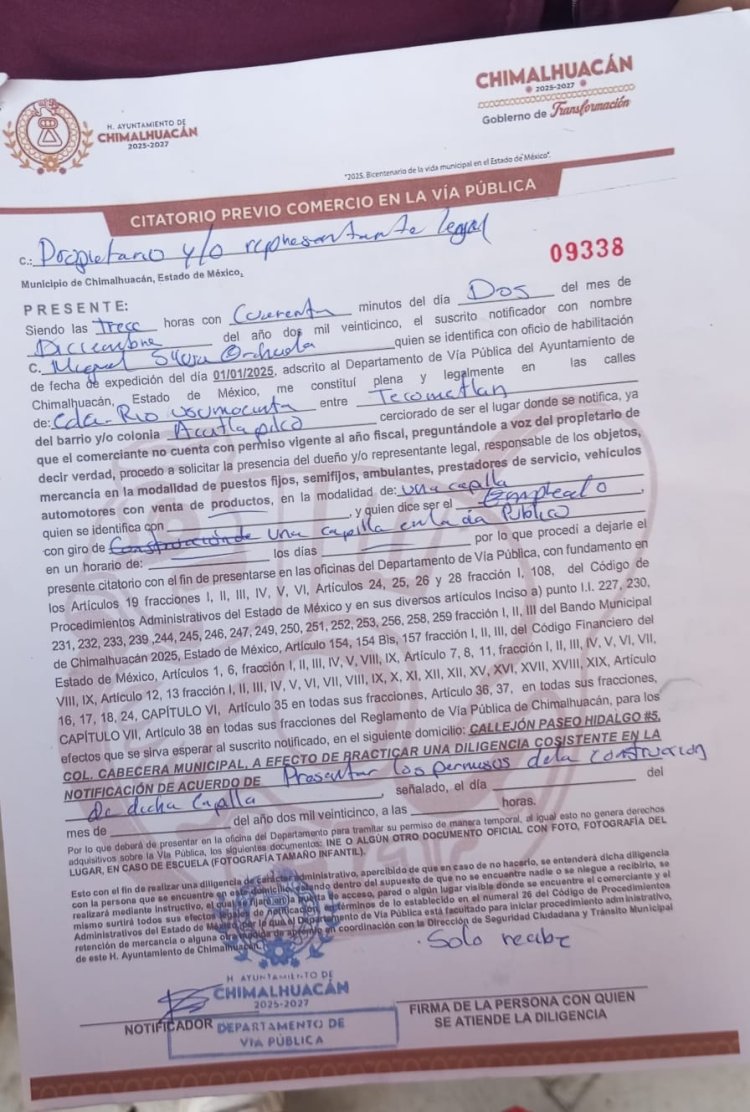 H. AYUNTAMIENTO DE
CHIMALHUACÁN
2025-2027
CHIMALHUACÁN
2025-2027
Gobierno de Transformación
"2025. Bicentenario de la vida municipal en el Estado de México".
CITATORIO PREVIO COMERCIO EN LA VÍA PÚBLICA
C.: Propietario y/o representante legal
09338
Municipio de Chimalhuacán, Estado de México,
PRESENTE:
Siendo las trece horas con Cuarenta minutos del día Dos del mes de
Diciembre del año dos mil veinticinco, el suscrito notificador con nombre
C. Miguel Silva quien se identifica con oficio de habilitación
de fecha de expedición del día 01/01/2025, adscrito al Departamento de Vía Pública del Ayuntamiento de
Chimalhuacán, Estado de México, me constituí plena y legalmente en las calles
de: Cda. Rio Usumacinta entre Tecomatlan
del barrio y/o colonia Acuitlapilco cerciorado de ser el lugar donde se notifica, ya
que el comerciante no cuenta con permiso vigente al año fiscal, preguntándole a voz del propietario de
decir verdad, procedo a solicitar la presencia del dueño y/o representante legal, responsable de los objetos,
mercancía en la modalidad de puestos fijos, semifijos, ambulantes, prestadores de servicio, vehículos
automotores con venta de productos, en la modalidad de: una capilla
quien se identifica con , y quien dice ser el Empleado
con giro de Construcción de una capilla en la via Publico
en un horario de: los días por lo que procedí a dejarle el
presente citatorio con el fin de presentarse en las oficinas del Departamento de Vía Pública, con fundamento en
los Artículos 19 fracciones I, II, III, IV, V, VI, Artículos 24, 25, 26 y 28 fracción I, 108, del Código de
Procedimientos Administrativos del Estado de México y en sus diversos artículos Inciso a) punto I.I. 227, 230,
231, 232, 233, 239 ,244, 245, 246, 247, 249, 250, 251, 252, 253, 256, 258, 259 fracción I, II, III del Bando Municipal
de Chimalhuacán 2025, Estado de México, Artículo 154, 154 Bis, 157 fracción I, II, III, del Código Financiero del
Estado de México, Artículos 1, 6, fracción I, II, III, IV, V, VIII, IX, Artículo 7, 8, 11, fracción I, II, III, IV, V, VI, VII,
VIII, IX, Artículo 12, 13 fracción I, II, III, IV, V, VI, VII, VIII, IX, X, XI, XII, XII, XV, XVI, XVII, XVIII, XIX, Artículo
16, 17, 18, 24, CAPÍTULO VI, Artículo 35 en todas sus fracciones, Artículo 36, 37, en todas sus fracciones,
CAPÍTULO VII, Artículo 38 en todas sus fracciones del Reglamento de Vía Pública de Chimalhuacán, para los
efectos que se sirva esperar al suscrito notificado, en el siguiente domicilio: CALLEJÓN PASEO HIDALGO #5,
COL. CABECERA MUNICIPAL, A EFECTO DE PRACTICAR UNA DILIGENCIA COSISTENTE EN LA
NOTIFICACIÓN DE ACUERDO DE Presentar los permisos de la construcion
De dicha Capilla , señalado, el día del
mes de del año dos mil veinticinco, a las horas.
Por lo que deberá de presentar en la oficina del Departamento para tramitar su permiso de manera temporal, al igual esto no genera derechos
adquisitivos sobre la Vía Publica, los siguientes documentos: INE O ALGÚN OTRO DOCUMENTO OFICIAL CON FOTO, FOTOGRAFÍA DEL
LUGAR, EN CASO DE ESCUELA (FOTOGRAFÍA TAMAÑO INFANTIL).
Esto con el fin de realizar una diligencia de carácter administrativo, apercibido de que en caso de no hacerlo, se entenderá dicha diligencia
con la persona que se encuentre en este domicilio, estando dentro del supuesto de que no se encuentre nadie o se niegue a recibirlo, se
realizará mediante instructivo, el cual se fijará en la puerta de acceso, pared o algún lugar visible donde se encuentre el comerciante y el
mismo surtirá todos sus efectos legales de notificación en términos de lo establecido en el numeral 26 del Código de Procedimientos
Administrativos del Estado de México, por lo que el Departamento de Vía Pública está facultado para iniciar procedimiento administrativo,
retención de mercancía o alguna otra medida de apremio en coordinación con la Dirección de Seguridad Ciudadana y Tránsito Municipal
de este H. Ayuntamiento de Chimalhuacán.
. Solo recibe
H AYUNTAMIENTO DE
CHIMALHUACÁN
2025-2027
NOTIFICADOR
DEPARTAMENTO DE
VIA PÚBLICA
FIRMA DE LA PERSONA CON QUIEN
SE ATIENDE LA DILIGENCIA